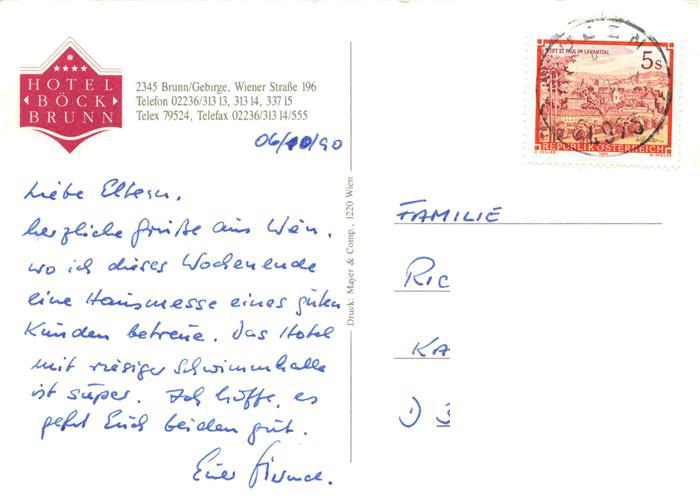 HOTEL
BÖCK
BRUNN
2345 Brunn/Gebirge, Wiener Straße 196
Telefon 02236/313 13, 313 14, 337 15
Telex 79524, Telefax 02236/313 14/555
06/10/90
Liebe Eltern,
herzliche Grüße aus Wien,
wo ich dieses Wochenende
eine Hausmesse eines guten
Kunden betreue. Das Hotel
mit riesiger Schwimmhalle
ist super. Ich hoffe, es
geht Euch beiden gut.
Euer
Druck: Mayer & Comp., 1220 Wien
STIFT ST. PAUL IM LAVANTTAL
5s
REPUBLIK ÖSTERREICH
FAMILIE
RIC
KA
D 3